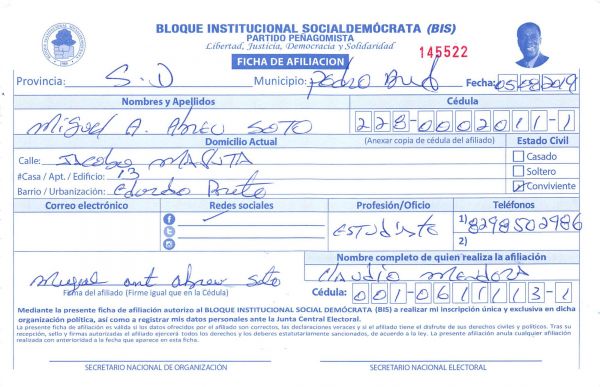 BLOQUE INSTITUCIONAL SOCIALDEMÓCRATA (BIS)
PARTIDO PEÑAGOMISTA
Libertad, Justicia, Democracia y Solidaridad
145522
FICHA DE AFILIACION
Provincia: S.D Municipio: Pedro Brand Fecha: 05/08/2018
Nombres y Apellidos Cédula
Miguel A. Abreu Soto 228-0002011-1
Domicilio Actual (Anexar copia de cédula del afiliado) Estado Civil
Calle: Jacobo Majluta Casado
#Casa / Apt. / Edificio: 13 Soltero
Barrio / Urbanización: Eduardo Brito Conviviente
Correo electrónico Redes sociales Profesión/Oficio Teléfonos
Estudiante 1) 8298502986
2)
Nombre completo de quien realiza la afiliación
Miguel ant Abreu Soto Claudio Mendoza
Firma del afiliado (Firme igual que en la Cédula) Cédula: 001-0611113-1
Mediante la presente ficha de afiliación autorizo al BLOQUE INSTITUCIONAL SOCIAL DEMÓCRATA (BIS) a realizar mi inscripción única y exclusiva en dicha
organización política, así como a registrar mis datos personales ante la Junta Central Electoral.
La presente ficha de afiliación es válida si los datos ofrecidos por el afiliado son correctos, las declaraciones veraces y si el afiliado tiene el disfrute de sus derechos civiles y políticos. Tras su
recepción, sello y firmas autorizadas el afiliado ejercerá todos los derechos y los deberes estatutariamente sancionados, de acuerdo a la ley. La presente afiliación anula cualquier afiliación
realizada con anterioridad a la fecha que aparece en esta ficha.
SECRETARIO NACIONAL DE ORGANIZACIÓN SECRETARIO NACIONAL ELECTORAL